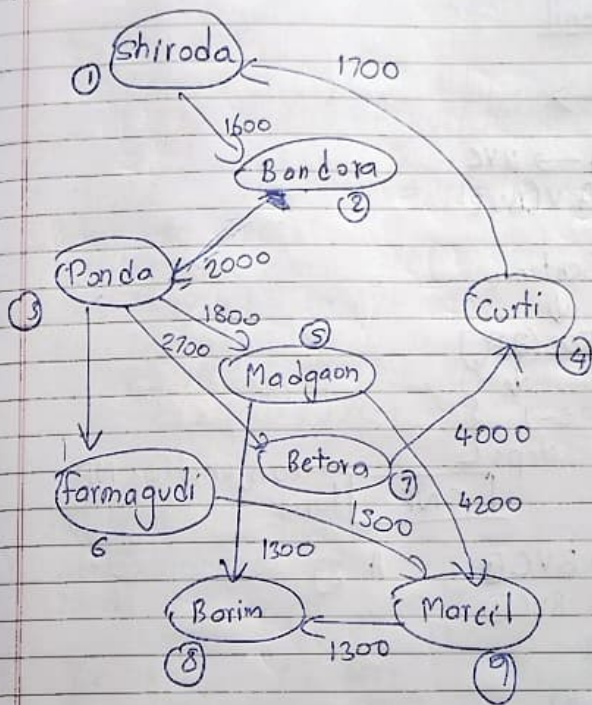 Shiroda
①
1700
1600
Bandora
②
Ponda
③
2000
1800
2700
⑤
Madgaon
Curti
④
Betora
⑦
4000
farmagudi
6
1500
4200
1300
Borim
⑧
Marcel
⑨
1300